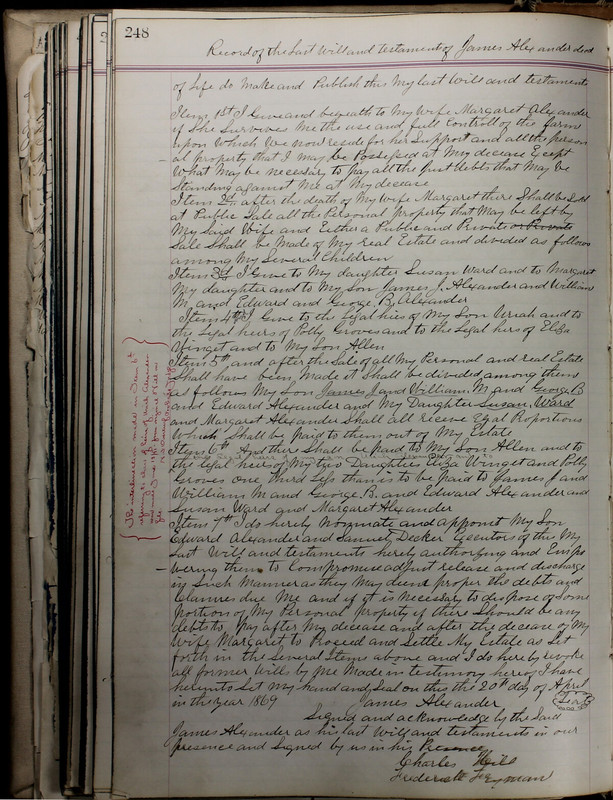 248
Record of the Last Will and testament of James Alexander decd
of Life do make and Publish this My last will and testaments
Item 1st I Give and beqeath to My Wife Margaret Alexander
if She Survives me the use and full Controll of the farm
upon Which We now reside for her Support and all the person
al property that I may be Possessed at My decease Except
What May be necessary to pay all the just debts that May be
Standing against Me at My decease
Item 2d after the death of My Wife Margaret there Shall be Sold
at Public Sale all the Personal property that May be left by
My Said Wife and Either a Public and Private or Private
Sale Shall be Made of My real Estate and divided as follows
among My Several Children
Item 3d I Give to My daughter Susan Ward and to Margaret
My daughter and to My Son James J. Alexander and William
M. and Edward and George, B, Alexander
Item 4th I Give to the Legal hies of My Son Uriah and to
the Legal heirs of Polly Groves and to the Legal hers of Eliza
Winget and to My Son Allen
Item 5th and after the Sale of all My Personal and real Estate
Shall have been Made it Shall be divided among them
as follows My Son James J and William M and George B
and Edward Alexander and My Daughter Susan, Ward
and Margaret Alexander Shall all receve Eqal Proportions
Which Shall be paid to them out of My Estate
Item 6th And there Shall be paid to My Son Allen and to
the legal heirs of My two Daughters Eliza Winget and Polly
Groves one third Less than is to be paid to James J and
William M and George B. and Edward Alexander and
Susan Ward and Margaret Alexander
Item 7th I do hereby Nominate and appoint My Son
Edward Alexander and Samuel Decker Executors of this My
Last Will and testaments hereby authorizing and Empo
wering them to Compromise adjust release and discharge
in Such Manner as they May deem proper the debts and
Claimes due Me and if it is necessary to dispose of Some
portion of My Personal property if there Should be any
debts to pay after My decease and after the decease of My
Wife Margaret to Proceed and Settle My Estate as Set
forth in the Several Items above and I do hereby revoke
all former Wills by Me Made in testimony hereof I have
hereunto Set My hand and Seal on this the 20th day of April
in the year 1869 James Alexander Seal
Signed and acknowledge by the Said
James Alexander as his last Will and testaments in our
presence and Signed by us in his Presence
Charles Heils
Frederick Feyman
The interlineation made in Item 6th